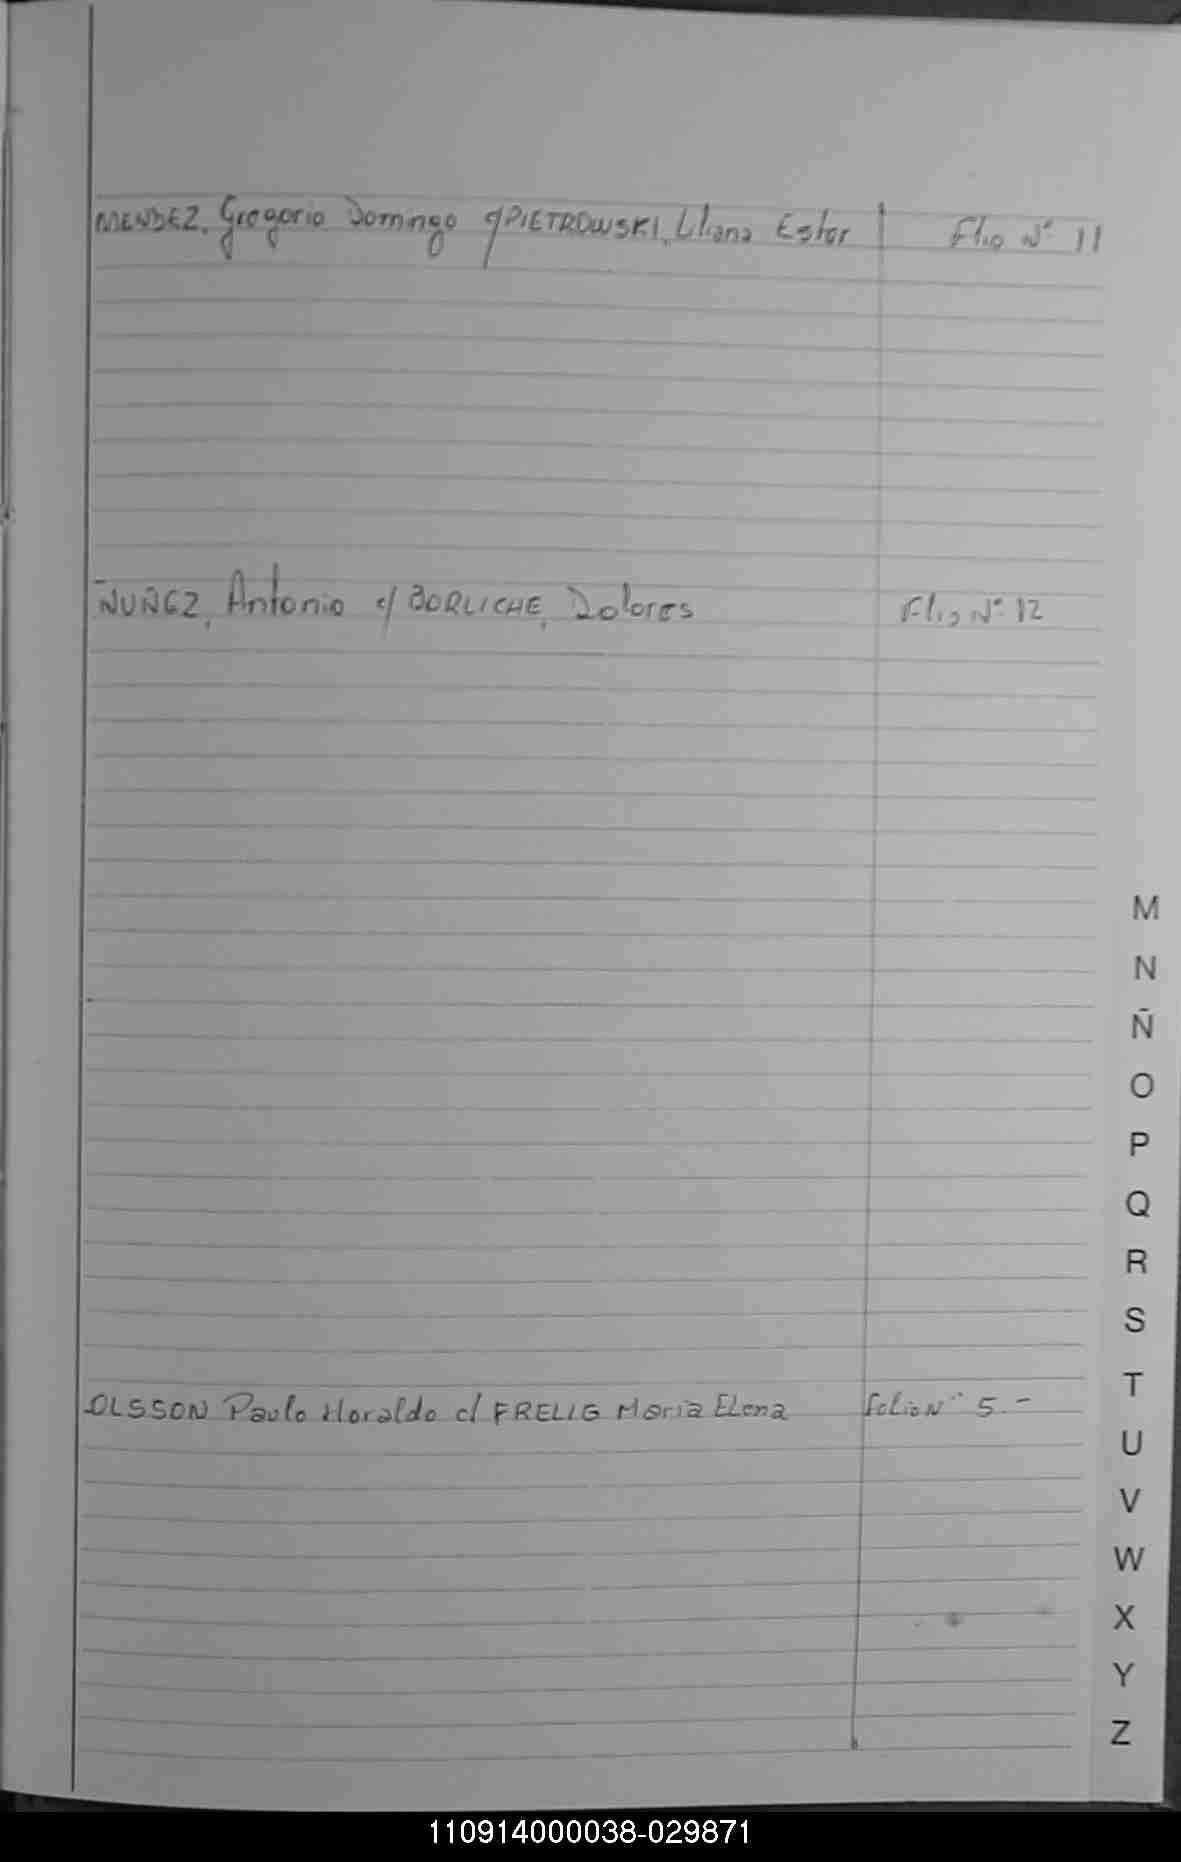 MENDEZ, Gregorio Domingo c/ PIETROWSKI, Liliana Ester Flio Nº 11
ÑUÑEZ, Antonio c/ BORLICHE, Dolores Flio Nº 12
OLSSON Paulo Haraldo c/ FRELLG Maria Elena Folio Nº 5.-
M
N
Ñ
O
P
Q
R
S
T
U
V
W
X
Y
Z
110914000038-029871